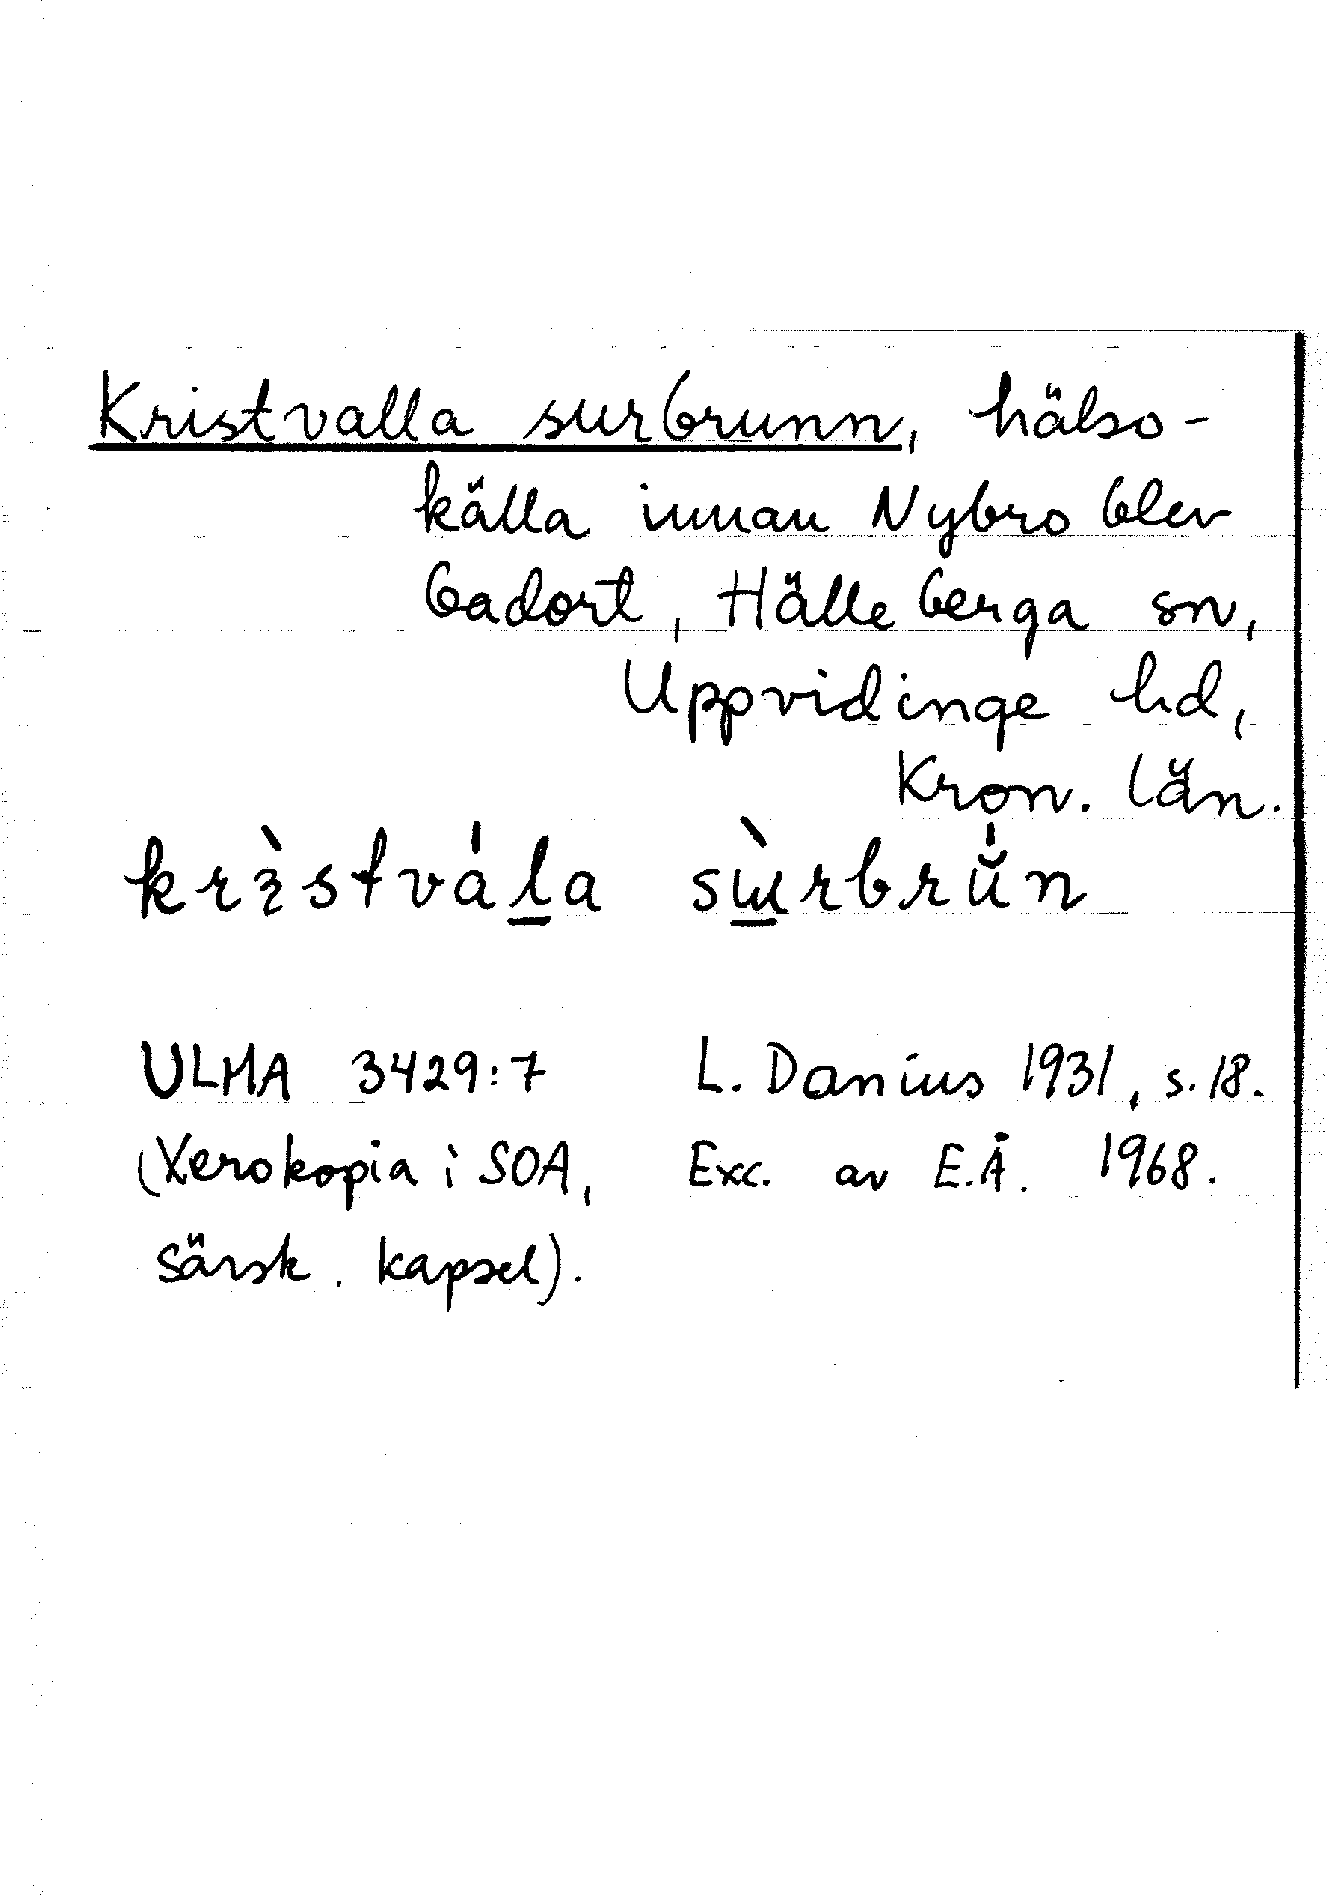 Kristvalla surbrunn, hälso-
källa innan Nybro blev
badort, Hälleberga sn,
Uppvidinge hd,
Kron. län.
ULMA 3429:7 L. Danius 1931, s. 18.
(Xerokopia i SOA, Exc. av E.Å. 1968.
särsk. kapsel).